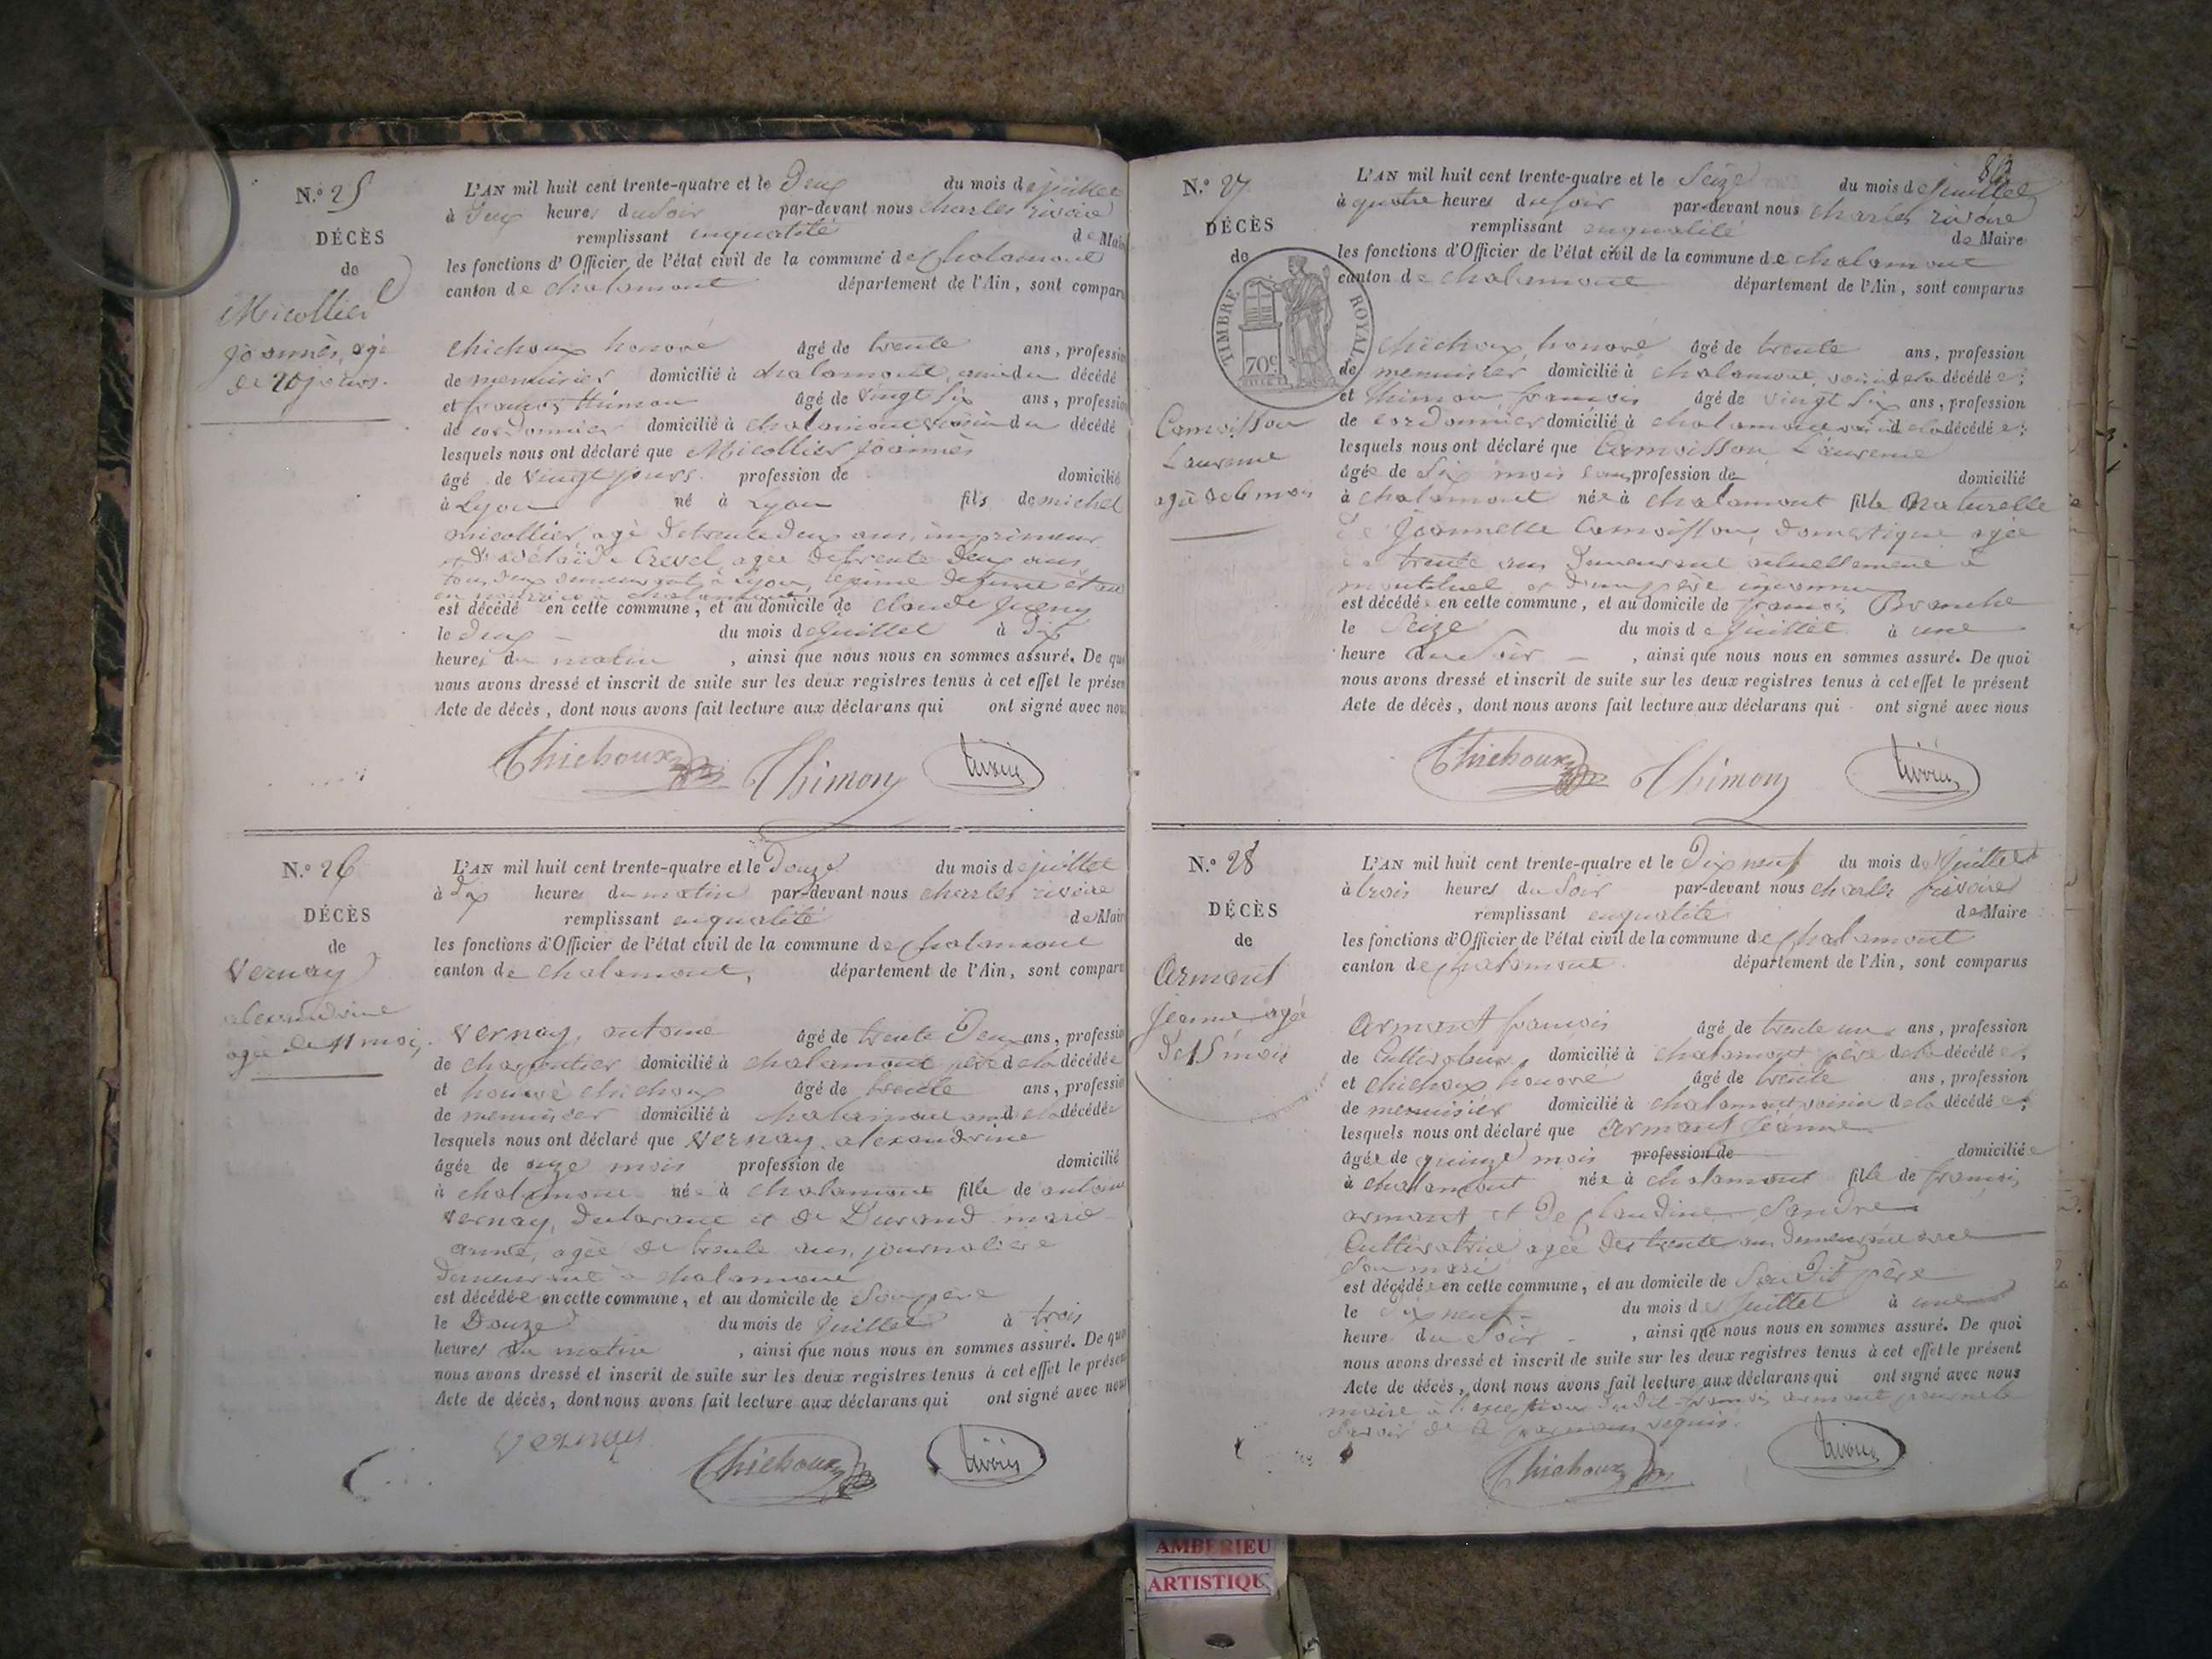 N.º 25
DÉCÈS
de
Micollier
Joannès, agé
de 20 jours.
L'AN mil huit cent trente-quatre et le Deux du mois de juillet
à Deux heures du soir par-devant nous charles rivoire
remplissant en qualité de Mair
les fonctions d'Officier de l'état civil de la commune de Chalamont
canton de chalamont département de l'Ain, sont comparu
chichoux honoré âgé de trente ans, professio
de menuisier domicilié à chalamont, ami du décédé
et françois thimon âgé de vingt six ans, professio
de cordonnier domicilié à chalamont voisin du décédé
lesquels nous ont déclaré que Micollier Joannès
âgé de vingt jours. profession de domicilié
à Lyon né à Lyon fils de michel
micollier, agé de trente deux ans, imprimeur
et d'adélaïde Crevel, agée de trente deux ans
tous deux demeurant à Lyon,
en nourrice à chalamont
est décédé en cette commune, et au domicile de claude
le deux du mois de juillet à dix
heures du matin, ainsi que nous nous en sommes assuré. De quo
nous avons dressé et inscrit de suite sur les deux registres tenus à cet effet le présen
Acte de décès, dont nous avons fait lecture aux déclarans qui ont signé avec nous
Chichoux Thimon Rivoire
N.º 26
DÉCÈS
de
Vernay
alexandrine
agée de 11 mois,
L'AN mil huit cent trente-quatre et le Douze du mois de juillet
à dix heures du matin par-devant nous charles rivoire
remplissant en qualité de Mair
les fonctions d'Officier de l'état civil de la commune de Chalamont
canton de chalamont, département de l'Ain, sont comparu
Vernay, antoine âgé de trente Deux ans, professio
de charpentier domicilié à chalamont père de la décédée
et honoré chichoux âgé de trente ans, professio
de menuisier domicilié à chalamont ami de la décédée
lesquels nous ont déclaré que Vernay alexandrine
âgée de onze mois profession de domicilié
à chalamont née à chalamont fille de antoine
Vernay, declarant et de Durand marie
anne, agée de trente ans, journalière
demeurant à chalamont
est décédée en cette commune, et au domicile de Son père
le Douze du mois de juillet à trois
heures du matin, ainsi que nous nous en sommes assuré. De quo
nous avons dressé et inscrit de suite sur les deux registres tenus à cet effet le présen
Acte de décès, dont nous avons fait lecture aux déclarans qui ont signé avec nous
Vernay Chichoux Rivoire
N.º 27
DÉCÈS
de
TIMBRE ROYAL
70c
Camoisson
Laurence
agée de 6 mois
L'AN mil huit cent trente-quatre et le Seize du mois de Juillet
à quatre heures du soir par-devant nous charles rivoire
remplissant en qualité de Maire
les fonctions d'Officier de l'état civil de la commune de chalamont
canton de chalamont département de l'Ain, sont comparus
chichoux honoré âgé de trente ans, profession
de menuisier domicilié à chalamont, voisin de la décédée;
et thimon françois âgé de vingt six ans, profession
de cordonnier domicilié à chalamont voisin de la décédée;
lesquels nous ont déclaré que Camoisson Laurence
âgée de Six mois sans profession de domicilié
à chalamont née à chalamont fille Naturelle
de Joannette Camoisson, domestique agée
de trente ans demeurant actuellement à
montluel et d'un père inconnu
est décédée en cette commune, et au domicile de françois Branche
le Seize du mois de juillet à une
heure du Soir, ainsi que nous nous en sommes assuré. De quoi
nous avons dressé et inscrit de suite sur les deux registres tenus à cet effet le présent
Acte de décès, dont nous avons fait lecture aux déclarans qui ont signé avec nous
Chichoux Thimon Rivoire
N.º 28
DÉCÈS
de
Armant
Jeanne agée
de 15 mois
L'AN mil huit cent trente-quatre et le Dix neuf du mois de Juillet
à trois heures du Soir par-devant nous charles rivoire
remplissant en qualité de Maire
les fonctions d'Officier de l'état civil de la commune de Chalamont
canton de chalamont département de l'Ain, sont comparus
Armant françois âgé de trente un ans, profession
de Cultivateur, domicilié à chalamont père de la décédée,
et chichoux honoré âgé de trente ans, profession
de menuisier domicilié à chalamont voisin de la décédée,
lesquels nous ont déclaré que Armant Jeanne
âgée de quinze mois profession de domiciliée
à chalamont née à chalamont fille de françois
armant et de Claudine Sandre
Cultivatrice agée de trente ans demeurant avec
Son mari
est décédée en cette commune, et au domicile de Son dit père
le dix neuf du mois de Juillet à une
heure du Soir, ainsi que nous nous en sommes assuré. De quoi
nous avons dressé et inscrit de suite sur les deux registres tenus à cet effet le présent
Acte de décès, dont nous avons fait lecture aux déclarans qui ont signé avec nous
maire à l'exception dudit françois armant pour ne le
Savoir de ce requis.
Chichoux Rivoire
AMBERIEU
ARTISTIQU